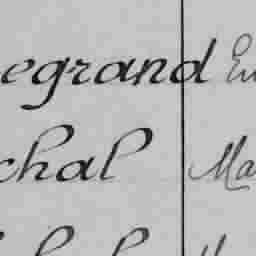 egrand En
chal Ma